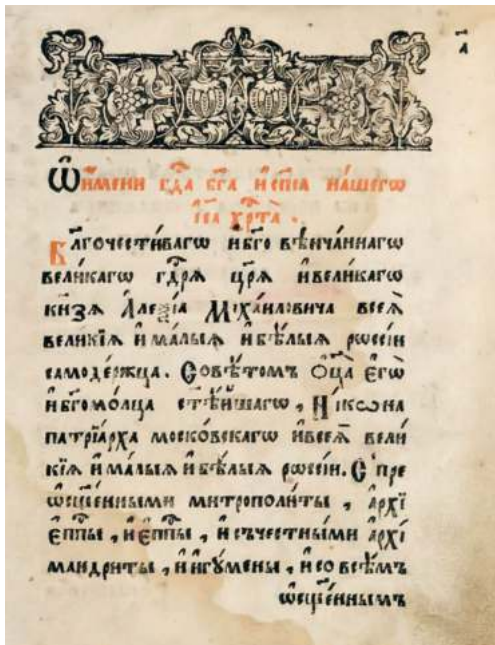 а҃
Ѿ и҆́мени гдⷭ҇а бг҃а и҆ спⷭ҇а на́шегѡ
і҆и҃са хрⷭ҇та̀ .
Бл҃гочести́вагѡ и҆ бг҃о вѣнча́ннагѡ
вели́кагѡ гдⷭ҇рѧ̀ цр҃ѧ̀ и҆ вели́кагѡ
кн҃зѧ А҆леѯі́а Мїха́иловича всеѧ̀
вели́кїѧ и҆ ма́лыѧ и҆ бѣ́лыѧ рѡссі́и
самоде́ржца . Совѣ́томъ ѻ҆ц҃а̀ є҆гѡ̀
и҆ бг҃омо́лца ст҃ѣ́йшагѡ , Ні́кѡна
патрїа́рха моско́вскагѡ и҆ всеѧ̀ вели́
кїѧ и҆ ма́лыѧ и҆ бѣ́лыѧ рѡссі́и . С̾ пре
ѡ҆сщ҃е́нными митрополи́ты , а҆рхї
є҆пⷭ҇пы , и҆ є҆пⷭ҇пы , и҆ съчестны́ми а҆рхі
мандри́ты , и҆ и҆гꙋ́мены , и҆ со всѣ́мъ
ѡ҆сщ҃е́ннымъ